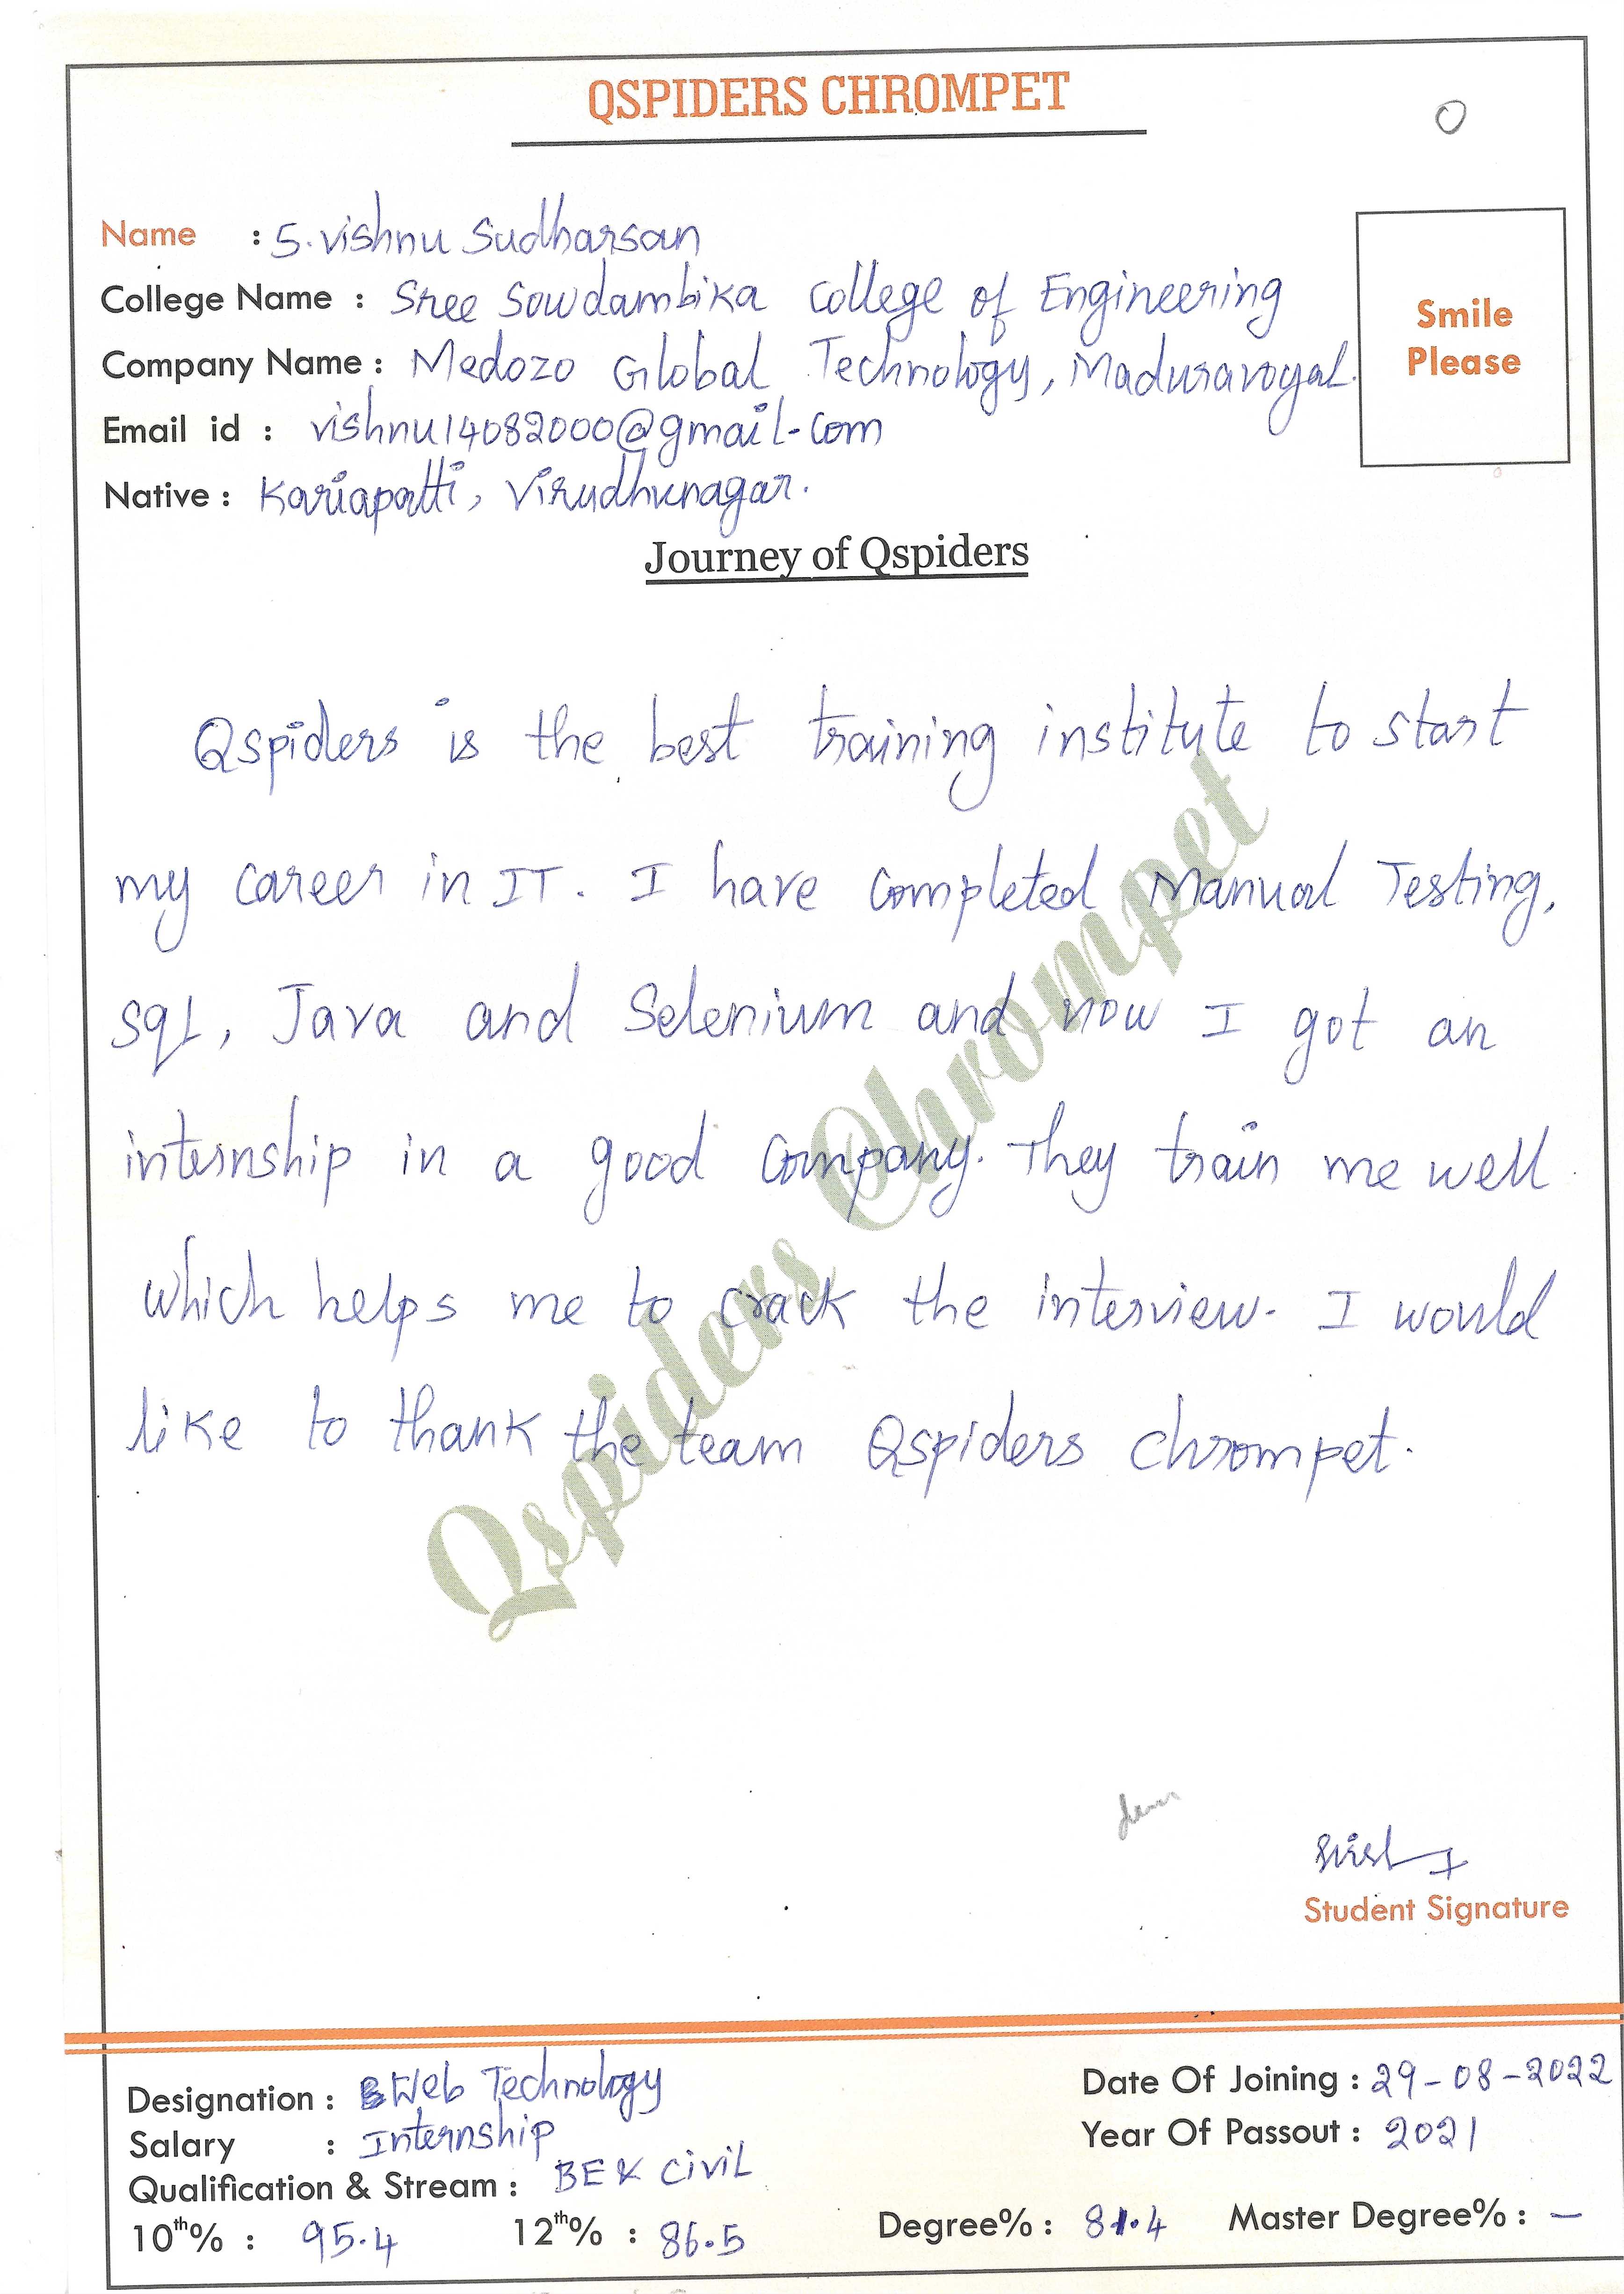 QSPIDERS CHROMPET
Name : S. Vishnu Sudharsan
College Name : Sree Sowdambika College of Engineering
Company Name : Medozo Global Technology, Maduravoyal.
Email id : vishnu14082000@gmail.com
Native : Kariapatti, Virudhunagar.
Smile
Please
Journey of Qspiders
Qspiders is the best training institute to start
my career in IT. I have completed Manual Testing,
SQL, Java and Selenium and now I got an
internship in a good company. They train me well
which helps me to crack the interview. I would
like to thank the team Qspiders chrompet.
Qspiders Chrompet
Student Signature
Designation : Web Technology
Date Of Joining : 29-08-2022
Salary : Internship
Year Of Passout : 2021
Qualification & Stream : BE & Civil
10th% : 95.4 12th% : 86.5 Degree% : 81.4 Master Degree% : -